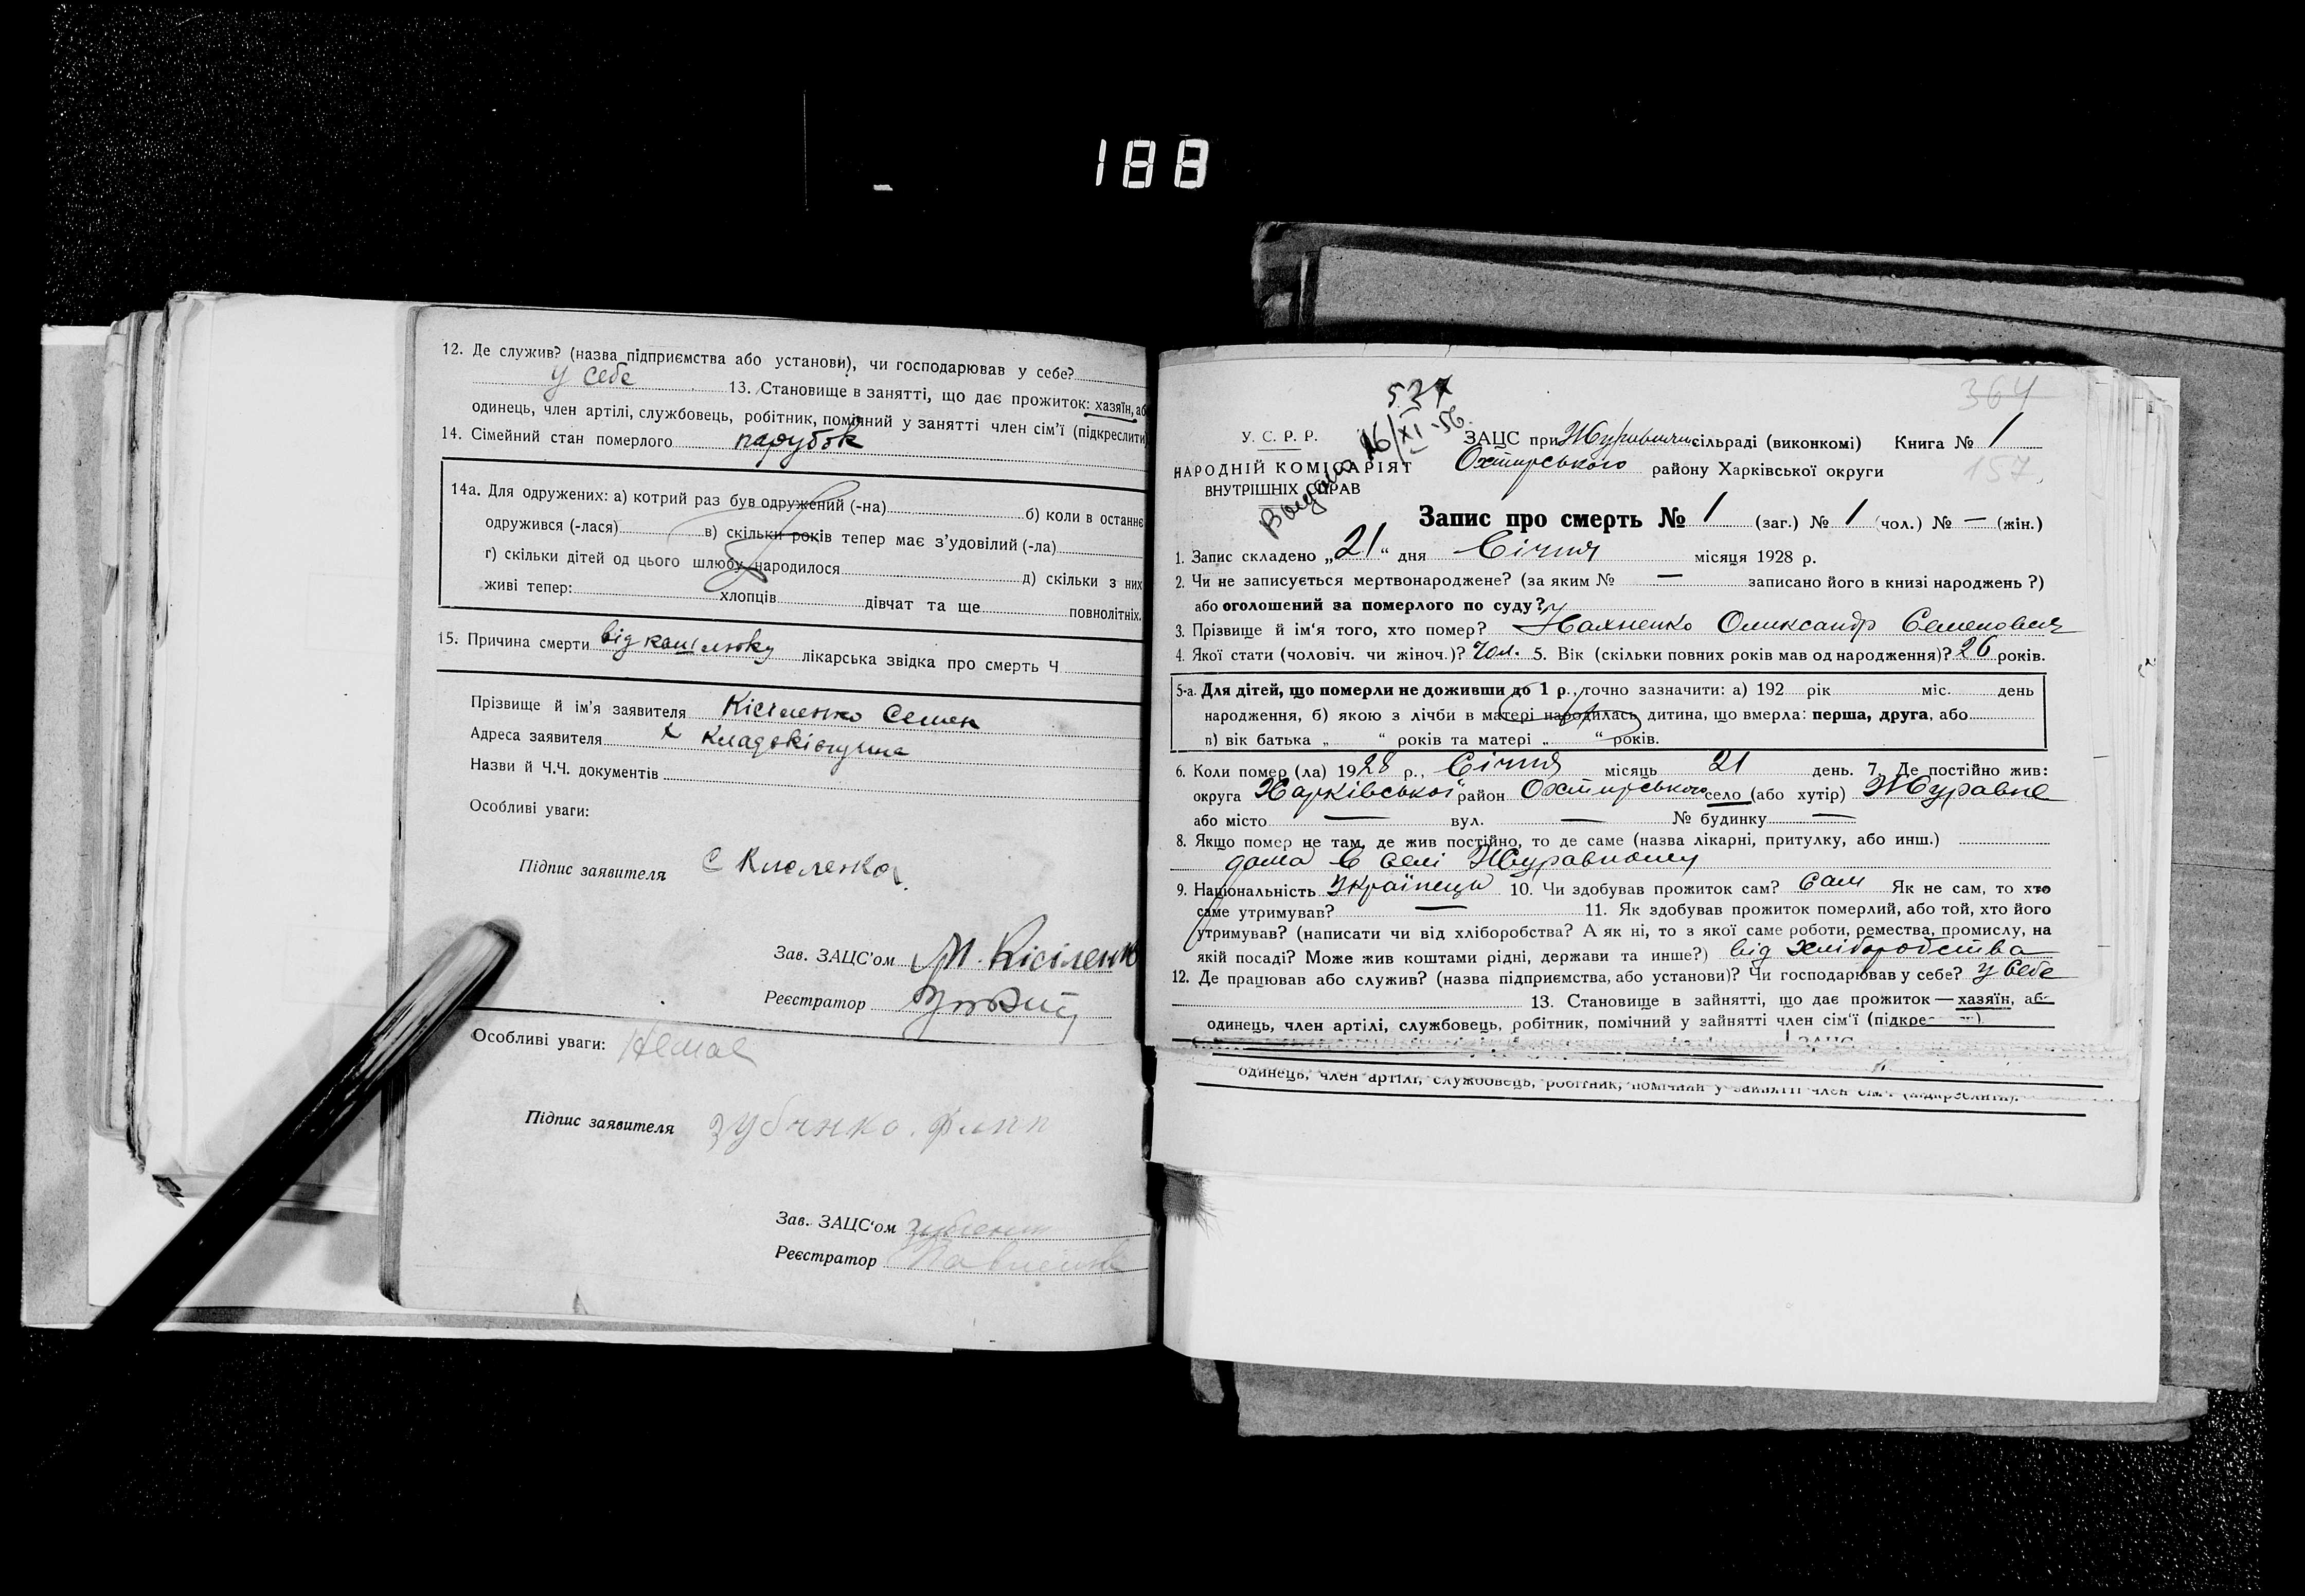 188
12. Де служив? (назва підприємства або установи), чи господарював у себе?
у себе 13. Становище в занятті, що дає прожиток: хазяїн, аб
одинець, член артілі, службовець, робітник, помічний у занятті член сім’ї (підкреслити
14. Сімейний стан померлого парубок
14а. Для одружених: а) котрий раз був одружений (-на) б) коли в останнє
одружився (-лася) в) скільки років тепер має з’удовілий (-ла)
г) скільки дітей од цього шлюбу народилося д) скільки з них
живі тепер: хлопців дівчат та ще повнолітніх.
15. Причина смерти від лікарська звідка про смерть Ч
Прізвище й ім’я заявителя Кісіленко Семен
Адреса заявителя х
Назви й Ч.Ч. документів
Особливі уваги:
Підпис заявителя С
Зав. ЗАЦС’ом М. Кісіленко
Реєстратор
Особливі уваги: Немає
Підпис заявителя
Зав. ЗАЦС‘ом
Реєстратор
527
364
16/XI-56
У. С. Р. Р. ЗАЦС при сільраді (виконкомі) Книга № 1
НАРОДНІЙ КОМІСАРІЯТ Охтирського району Харківської округи 157
ВНУТРІШНІХ СПРАВ
Запис про смерть № 1 (заг.) № 1 (чол.) № — (жін.)
1. Запис складено „21“ дня Січня місяця 1928 р.
2. Чи не записується мертвонароджене? (за яким № — записано його в книзі народжень ?)
або оголошений за померлого по суду?
3. Прізвище й ім‘я того, хто помер? Олександр Семенович
4. Якої стати (чоловіч. чи жіноч.)? Чол. 5. Вік (скільки повних років мав од народження)? 26 років.
5-а. Для дітей, що померли не доживши до 1 р., точно зазначити: а) 192 рік міс. день
народження, б) якою з лічби в матері народилась дитина, що вмерла: перша, друга, або
в) вік батька „ “ років та матері „ “ років.
6. Коли помер (ла) 1928 р., Січня місяць 21 день. 7. Де постійно жив:
округа Харківської район Охтирського село (або хутір) Журавне
або місто — вул. — № будинку —
8. Якщо помер не там, де жив постійно, то де саме (назва лікарні, притулку, або инш.)
дома в селі Журавному
9. Національність Українець 10. Чи здобував прожиток сам? Сам Як не сам, то хто
саме утримував? — 11. Як здобував прожиток померлий, або той, хто його
утримував? (написати чи від хліборобства? А як ні, то з якої саме роботи, ремества, промислу, на
якій посаді? Може жив коштами рідні, держави та инше?) від хліборобства
12. Де працював або служив? (назва підприємства, або установи)? Чи господарював у себе? у себе
13. Становище в зайнятті, що дає прожиток — хазяїн, або
одинець, член артілі, службовець, робітник, помічний у зайнятті член сім‘ї
одинець, член артілі, службовець, робітник, помічний у зайнятті член сім‘ї (підкреслити).